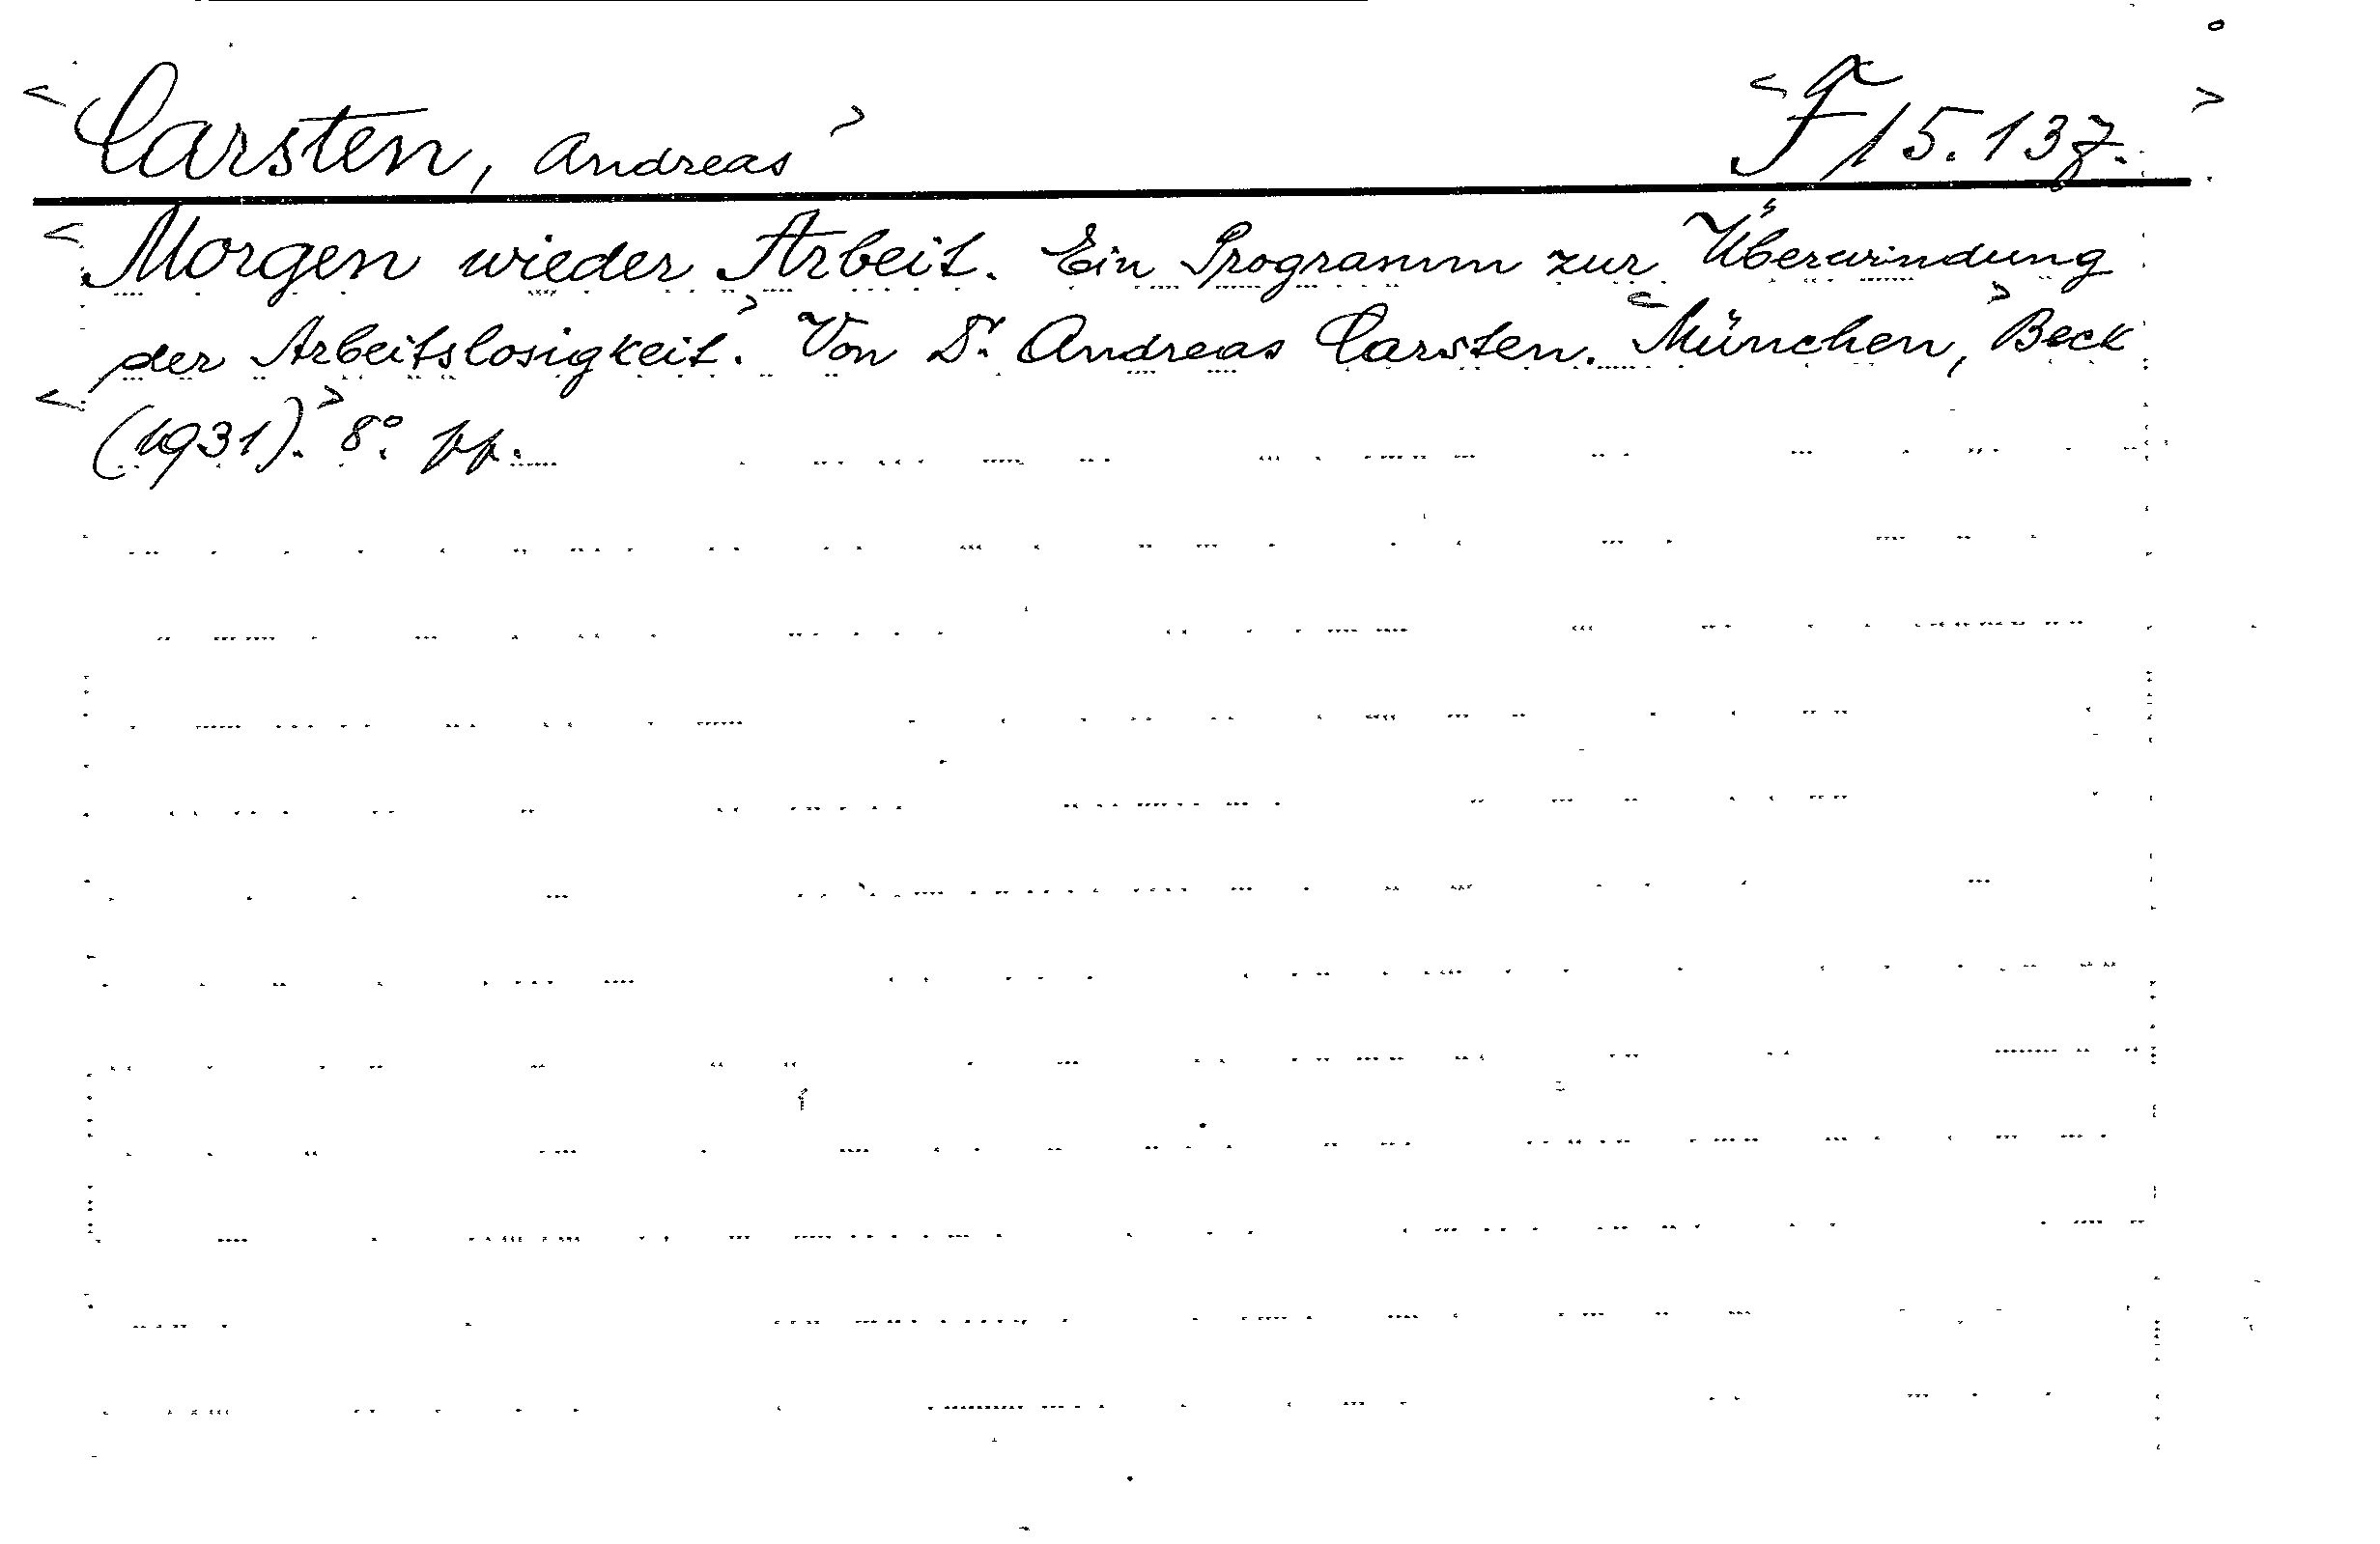 <Carsten, Andreas> <F 15.137.>
<Morgen wieder Arbeit. Ein Programm zur Überwindung
der Arbeitslosigkeit.> Von Dr. Andreas Carsten. <München,> Beck
<(1931).> 8°. pp.